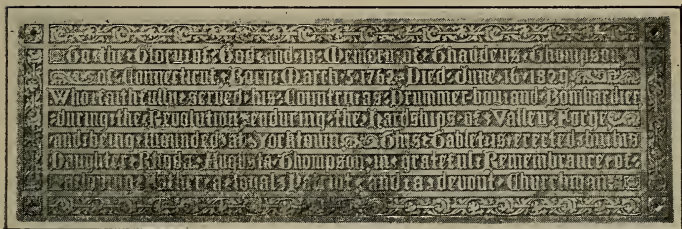 To·the·Glory·of·God·and·in·Memory·of·Thaddeus·Thompson
of·Connecticut·Born·March·5·1762·Died·June·16·1829
Who·faithfully·served·his·Country·as·Drummer·boy·and·Bombardier
during·the·Revolution·enduring·the·hardships·of·Valley·Forge
and·being·wounded·at·Yorktown·This·Tablet·is·erected·by·his
Daughter·Augusta·Thompson·in·grateful·Remembrance·of·
a·loving·Father·a·loyal·Patriot·and·a·devout·Churchman